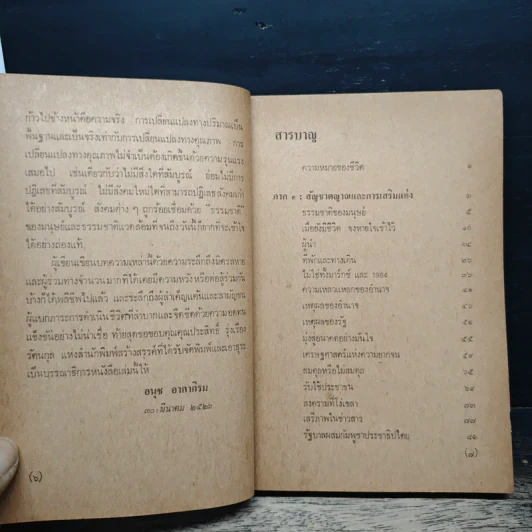 ก้าวไปข้างหน้าคือความจริง การเปลี่ยนแปลงทางปริมาณเป็น
พื้นฐานและเป็นจริงเท่ากับการเปลี่ยนแปลงทางคุณภาพ การ
เปลี่ยนแปลงทางคุณภาพไม่จำเป็นต้องเกิดขึ้นด้วยความรุนแรง
เสมอไป เช่นเดียวกับว่าไม่มีสิ่งใดที่สมบูรณ์ ย่อมไม่มีการ
ปฏิเสธที่สมบูรณ์ ไม่มีสังคมใหม่ใดที่สามารถปฏิเสธสังคมเก่า
ได้อย่างสมบูรณ์ สังคมต่าง ๆ ถูกร้อยเชื่อมด้วย ธรรมชาติ
ของมนุษย์และธรรมชาติแวดล้อมที่จนถึงวันนี้ก็ยากที่จะเข้าใจ
ได้อย่างถ่องแท้
ผู้เขียนเขียนบทความเหล่านี้ด้วยความระลึกถึงมิตรสหาย
และผู้ร่วมทางจำนวนมากที่ได้เคยมีความหวังหรือต่อสู้ร่วมกัน
บ้างก็ได้พลีชีพไปแล้ว และระลึกถึงผู้ลำเค็ญแค้นและสามัญชน
ผู้แบกภาระการดำเนินชีวิตที่ลำบากและจิตขีดด้วยความอดทน
แข็งขันอย่างไม่น่าเชื่อ ท้ายสุดขอขอบคุณคุณประสิทธิ์ รุ่งเรือง
รัตนกุล แห่งสำนักพิมพ์สร้างสรรค์ที่ได้รับจัดพิมพ์และเอาธุระ
เป็นบรรณาธิการหนังสือเล่มนี้ให้
อนุช อาภาภิรม
๓๐ มีนาคม ๒๕๒๖
(๖)
สารบาญ
ความหมายของชีวิต ๑
ภาค ๑ : สัญชาตญาณและการเสริมแต่ง
ธรรมชาติของมนุษย์ ๕
เมื่อยังมีชีวิต จงหายใจเข้าไว้
ผู้นำ ๑๘
ที่พักและทางเดิน ๒๖
ไม่ใช่ทั้งมาร์กซ์ และ 1984 ๓๑
ความเหลวแหลกของอำนาจ ๓๖
เหตุผลของอำนาจ ๔๑
เหตุผลของรัฐ ๔๕
มุ่งสู่อนาคตอย่างมั่นใจ ๕๐
เศรษฐศาสตร์แห่งความยากจน ๕๙
สมดุลหรือไม่สมดุล ๖๕
รับใช้ประชาชน ๖๘
สงครามที่โง่เขลา ๗๓
เสรีภาพในข่าวสาร ๗๗
รัฐบาลผสมกัมพูชาประชาธิปไตย ๘๑
(๗)